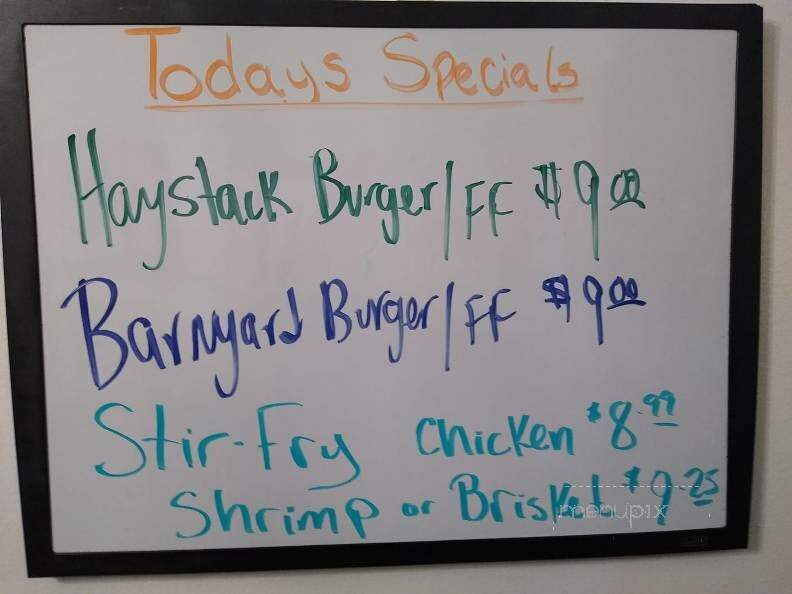 Todays Specials
Haystack Burger/FF $9.00
Barnyard Burger/FF $9.00
Stir-Fry Chicken $8.99
Shrimp or Brisket $9.25
menupix